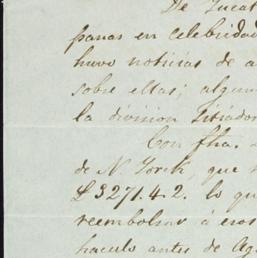 De Yucat
panas en celebridad
huvo noticias de a
sobre ellas; algun
la division Sitiador
Con fha.
de N. York, que
£3271.4.2. lo qu
reembolsar á esos
hacerlo antes de Ag